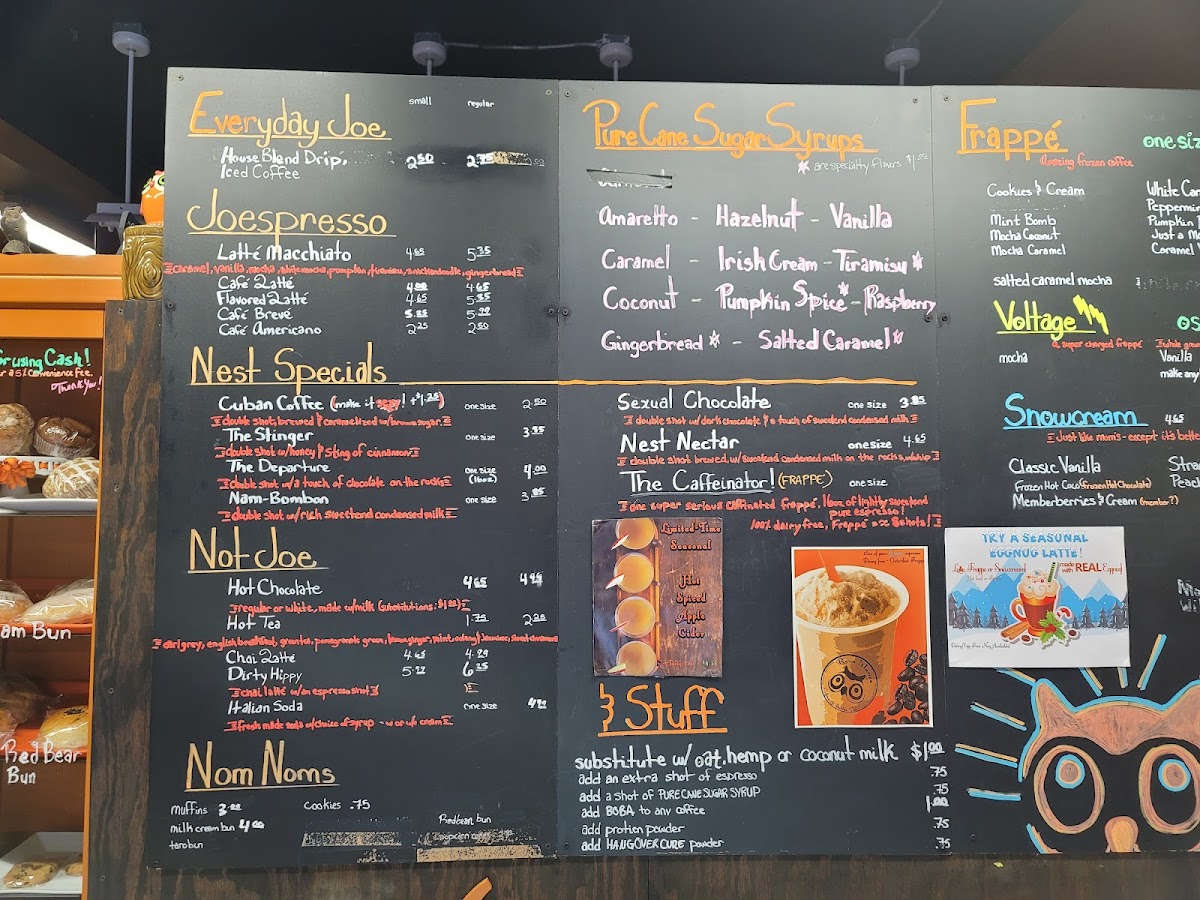 Everyday Joe
small regular
House Blend Drip, 2.50 2.75
Iced Coffee
Joespresso
Latté Macchiato 4.65 5.35
Café Latté 4.00 4.65
Flavored Latté 4.65 5.35
Café Brevé
Café Americano 2.25 2.50
Nest Specials
Cuban Coffee (make it ! +$1.25) one size 2.50
double shot, brewed & caramelized w/brown sugar
The Stinger one size
double shot w/honey & sting of cinnamon
The Departure one size (16oz) 4.00
double shot w/a touch of chocolate on the rocks
Nam-Bombon one size
double shot w/rich sweetend condensed milk
Not Joe
Hot Chocolate 4.65
regular or white, made w/milk (substitutions: $1.00)
Hot Tea 1.75
Chai Latté 4.65
Dirty Hippy
chai latté w/an espresso shot
Italian Soda one size
fresh made soda w/choice of syrup - w or w/o cream
Nom Noms
Muffins 3.00 Cookies .75
milk cream bun 4.00 Redbean bun
taro bun
Pure Cane Sugar Syrups
are specialty flavors $1.00
Amaretto - Hazelnut - Vanilla
Caramel - Irish Cream - Tiramisu *
Coconut - Pumpkin Spice* - Raspberry
Gingerbread * - Salted Caramel *
Sexual Chocolate one size
double shot w/dark chocolate & a touch of sweetend condensed milk
Nest Nectar one size 4.65
double shot brewed, w/sweetend condensed milk on the rocks, w/whip
The Caffeinator! (FRAPPÉ) one size
one super serious caffinated frappé, 16oz of lightly sweetend
pure espresso!
100% dairy free, Frappé
Limited-Time
Seasonal
Hot
Spiced
Apple
Cider
& Stuff
substitute w/ oat, hemp or coconut milk $1.00
add an extra shot of espresso .75
add a shot of PURE CANE SUGAR SYRUP .75
add BOBA to any coffee 1.00
add protien powder .75
add HANGOVER CURE powder .75
Frappé one siz
Amazing frozen coffee
Cookies & Cream White Car
Mint Bomb Peppermin
Mocha Coconut Pumpkin
Mocha Caramel Just a M
Caramel
salted caramel mocha
Voltage os
a super charged frappé
mocha Vanilla
make any
Snowcream 4.65
Just like mom's - except it's bette
Classic Vanilla Stra
Frozen Hot Coco (frozen Hot Chocolate) Peac
Memberberries & Cream (member?)
TRY A SEASONAL
EGGNOG LATTE!
Latte, Frappe or Snowcream!
made with REAL Eggnog!
or using Cash!
r a 5% convenience fee.
Thank You!
am Bun
Red Bean
Bun